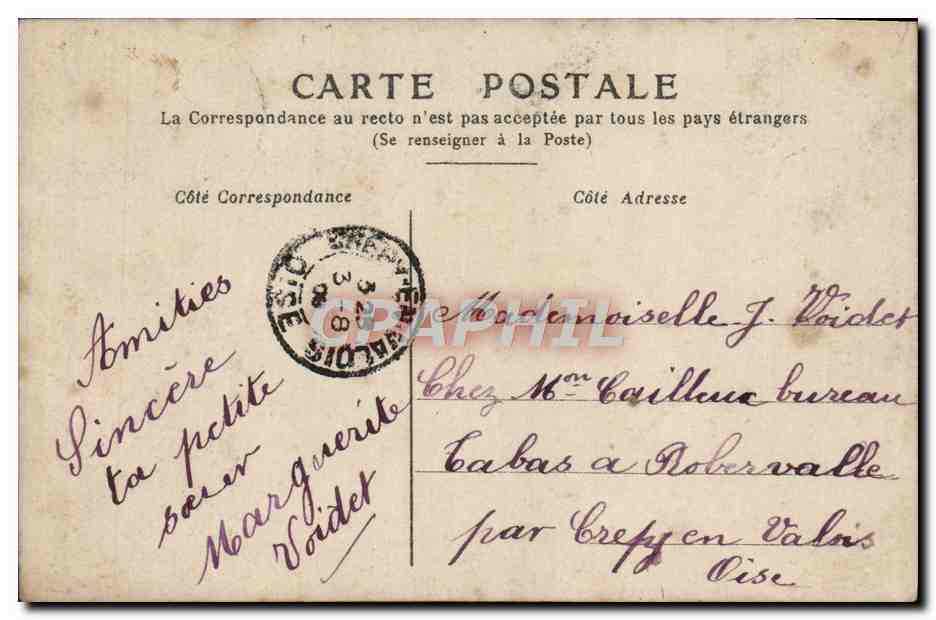 CARTE POSTALE
La Correspondance au recto n'est pas acceptée par tous les pays étrangers
(Se renseigner à la Poste)
Côté Correspondance
Amities
Sincère
ta petite
sœur
Marguerite
Voidet
CREPY-EN-VALOIS
OISE
3-8
CPAPHIL
Côté Adresse
Mademoiselle J. Voidet
Chez Mon Cailleux bureau
Tabas a Robervalle
par Crepy en Valois
Oise